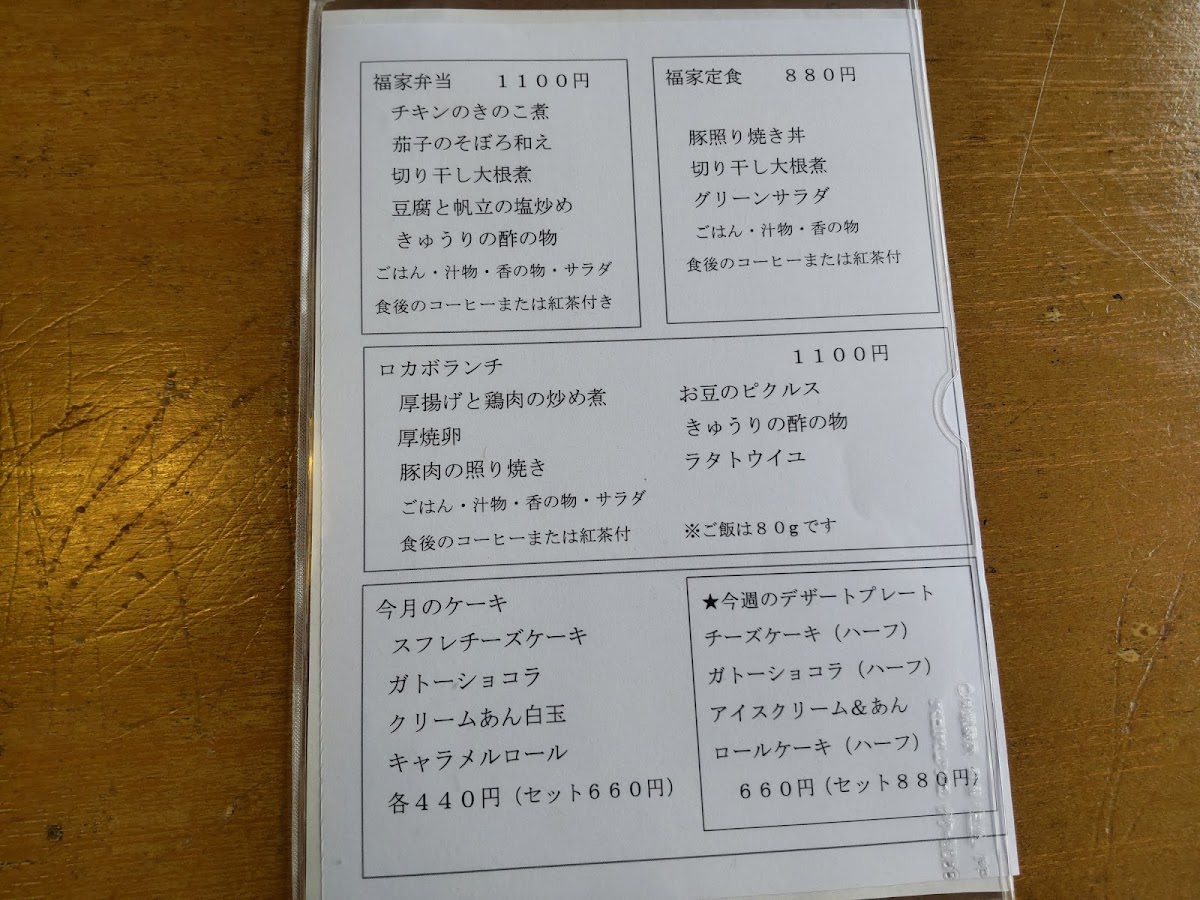 福家弁当　１１００円
チキンのきのこ煮
茄子のそぼろ和え
切り干し大根煮
豆腐と帆立の塩炒め
きゅうりの酢の物
ごはん・汁物・香の物・サラダ
食後のコーヒーまたは紅茶付き
福家定食　８８０円
豚照り焼き丼
切り干し大根煮
グリーンサラダ
ごはん・汁物・香の物
食後のコーヒーまたは紅茶付
ロカボランチ　１１００円
厚揚げと鶏肉の炒め煮
厚焼卵
豚肉の照り焼き
ごはん・汁物・香の物・サラダ
食後のコーヒーまたは紅茶付
お豆のピクルス
きゅうりの酢の物
ラタトウイユ
※ご飯は８０ｇです
今月のケーキ
スフレチーズケーキ
ガトーショコラ
クリームあん白玉
キャラメルロール
各４４０円（セット６６０円）
★今週のデザートプレート
チーズケーキ（ハーフ）
ガトーショコラ（ハーフ）
アイスクリーム＆あん
ロールケーキ（ハーフ）
６６０円（セット８８０円）